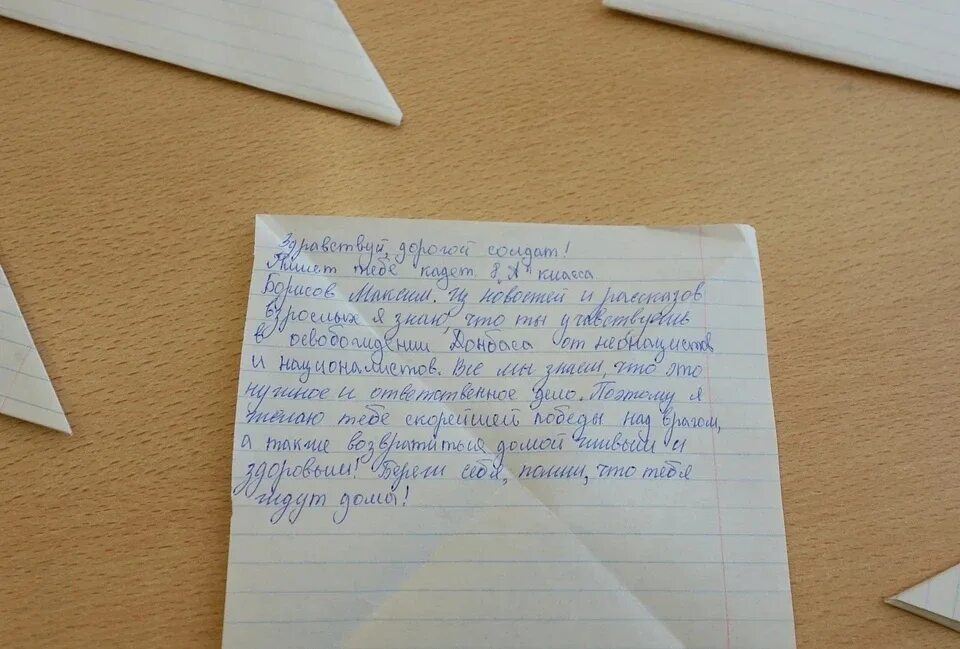 Здравствуй, дорогой солдат!
Пишет тебе кадет 8 „А" класса
Борисов Максим. Из новостей и рассказов
взрослых я знаю, что ты участвуешь
в освобождении Донбаса от неонацистов
и националистов. Все мы знаем, что это
нужное и ответственное дело. Поэтому я
желаю тебе скорейшей победы над врагом,
а также возвратиться домой живым и
здоровым! Береги себя, помни, что тебя
ждут дома!